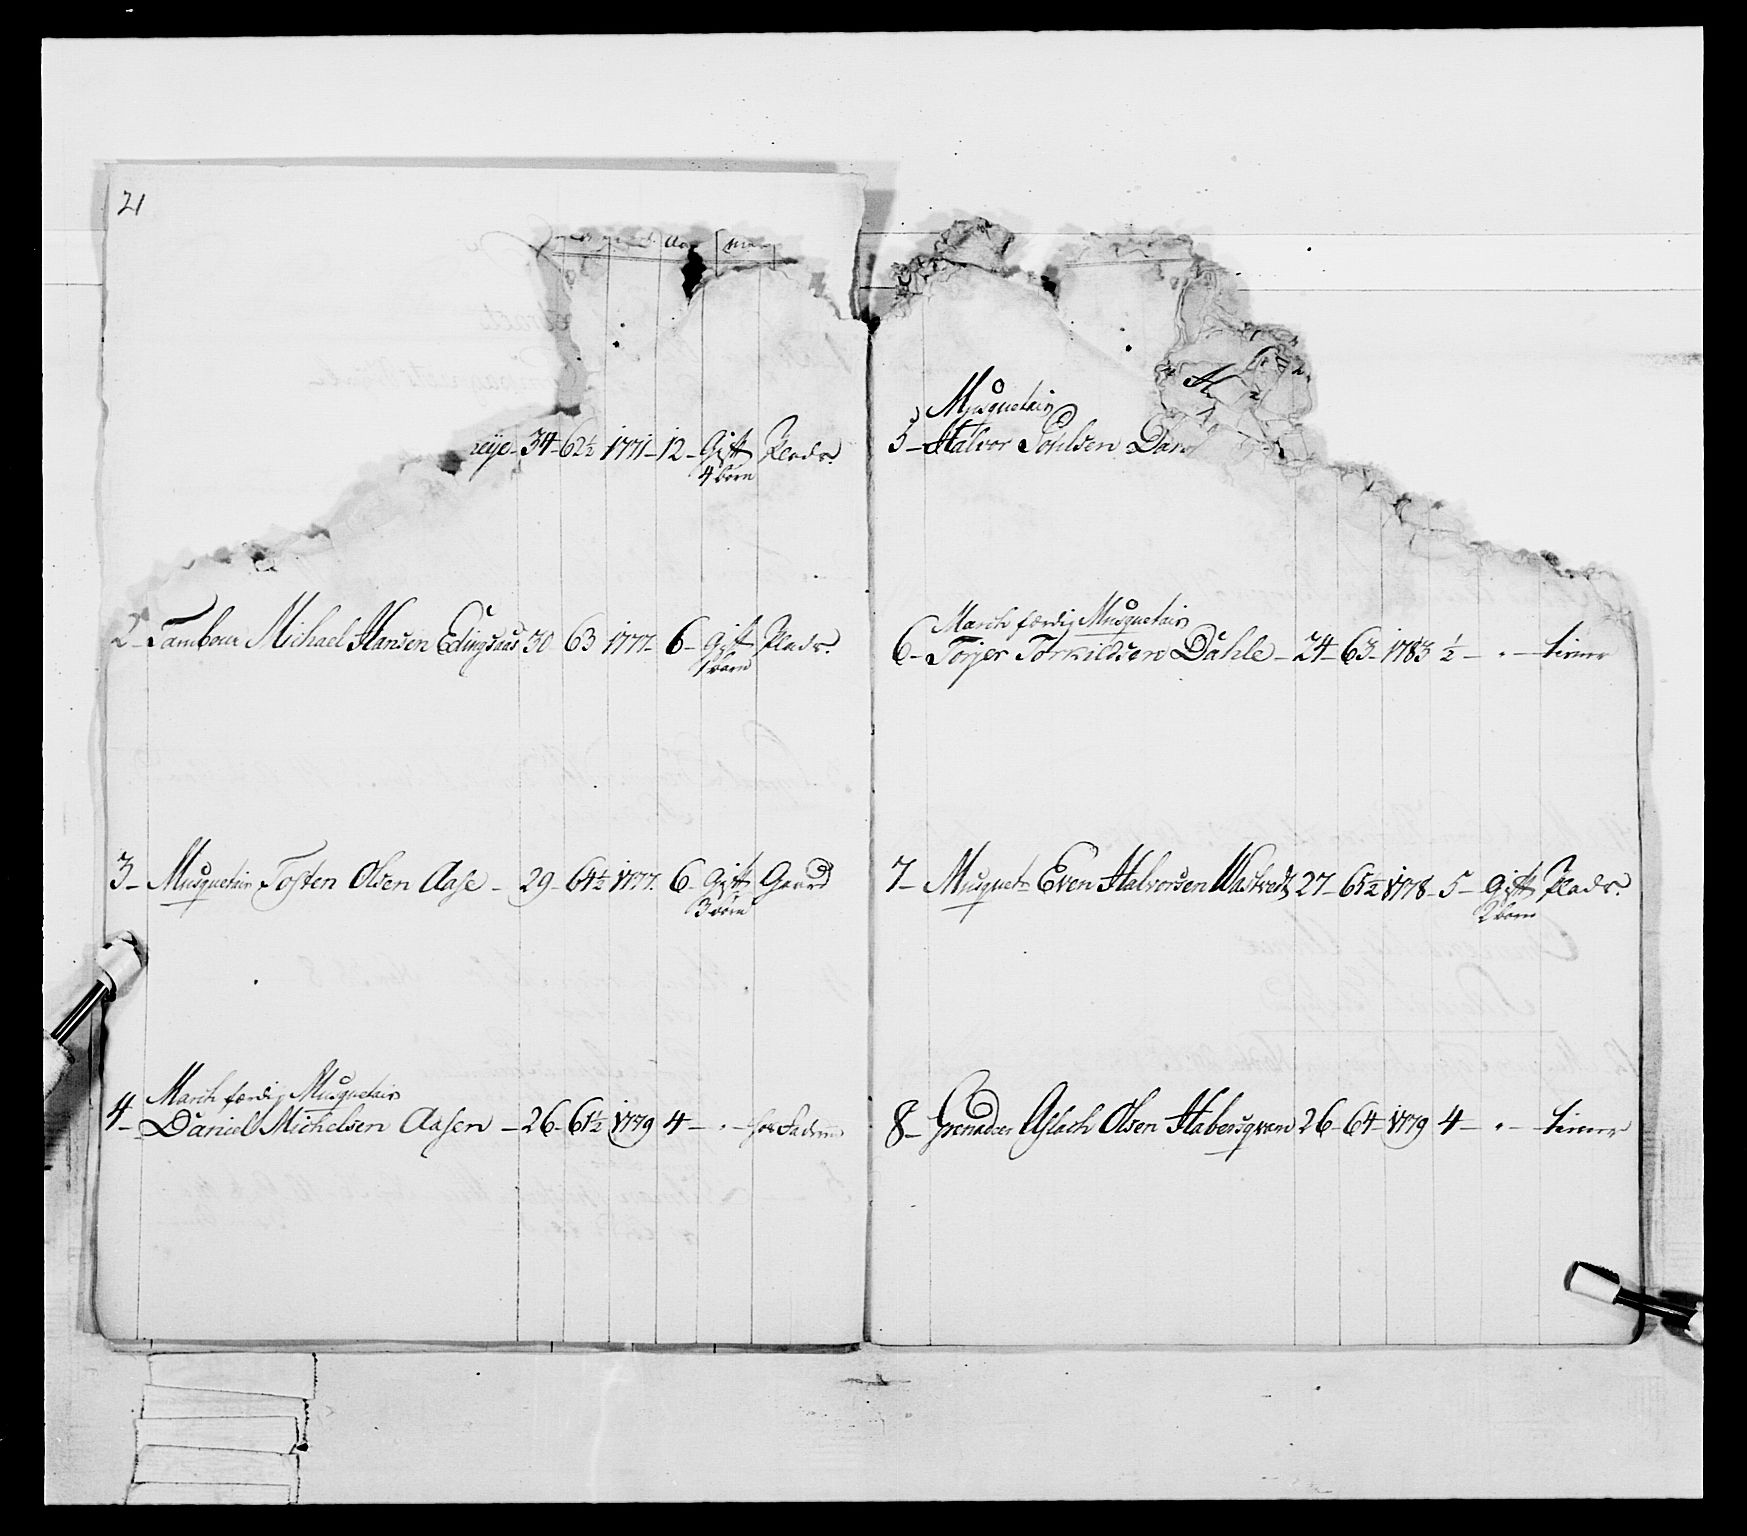 21
Aar
eÿe - 34 - 62½ 1771 - 12 - Gift Pladz.
4 børn
2 - Tambour Michael Hansen Edingsaas 30 63 1777 - 6 - Gift Pladz.
1 barn
3 - Musquetair Tosten Olsen Aase - 29 - 64½ 1777. 6 - Gift Gaard
3 børn
March færdig Musquetair
4 - Daniel Michelsen Aasen - 26 - 61½ 1779 4 - " - hos Faderen
Musquetair
5 - Halvor Povelsen
March færdig Musquetair
6 - Torjer Torkildsen Dahle - 24 - 63 - 1783 ½ - " - tiener
7 - Musquetr Even Halvorsen Wastvedt 27 - 65½ 1778 - 5 - Gift Pladz.
2 børn
8 - Grenadeer Aslach Olsen Habersqvam 26 - 64 - 1779 4 - " - tiener